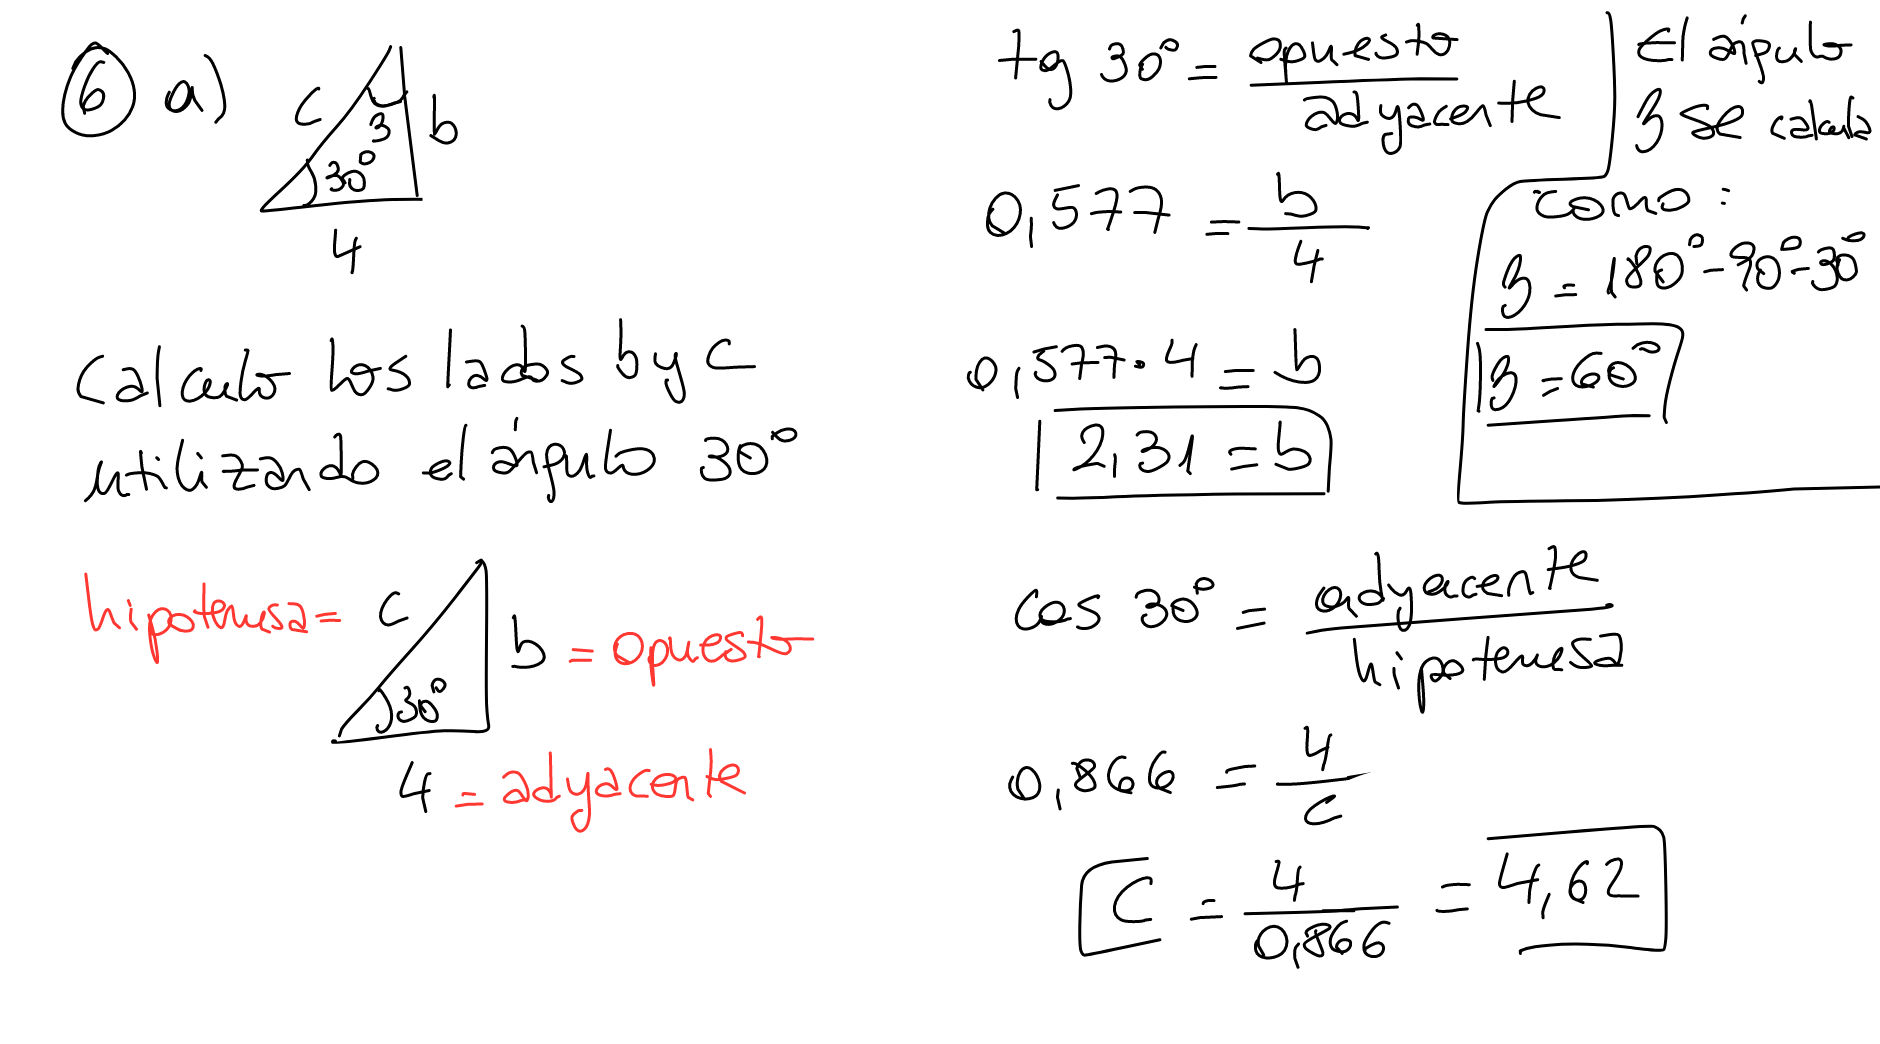 6 a)
c
3
b
30°
4
Calculo los lados b y c
utilizando el ángulo 30°
hipotenusa = c
b = opuesto
30°
4 = adyacente
tg 30° = opuesto / adyacente
0,577 = b / 4
0,577 · 4 = b
2,31 = b
cos 30° = adyacente / hipotenusa
0,866 = 4 / c
C = 4 / 0,866 = 4,62
El ángulo
3 se calcula
como :
3 = 180° - 90° - 30°
3 = 60°